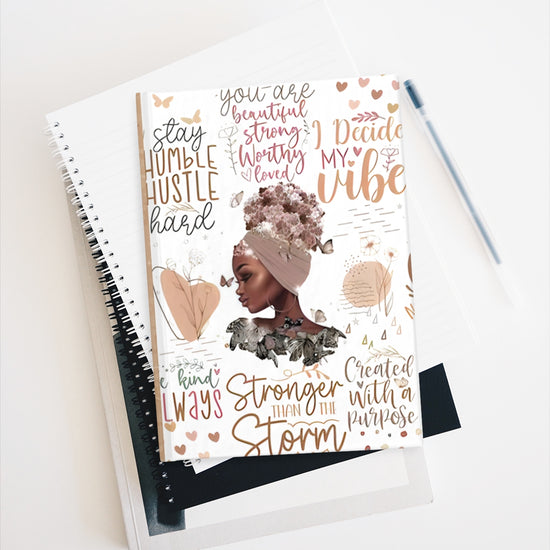 you are
beautiful
strong
Worthy
loved
stay
HUMBLE
HUSTLE
hard
I Decide
MY
vibe
kind
ALWAYS
Stronger
THAN THE
Storm
Created
WITH A
PURPOSE